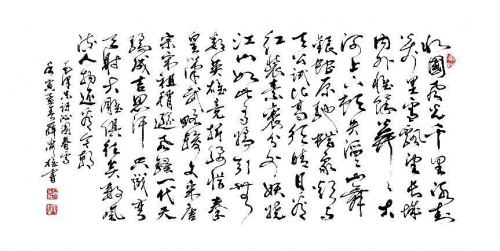 北國風光千里冰封
萬里雪飄望長城
內外惟餘莽莽大
河上下頓失滔滔山舞
銀蛇原馳蠟象欲與
天公試比高須晴日看
紅裝素裹分外妖嬈
江山如此多嬌引無
數英雄競折腰惜秦
皇漢武略輸文采唐
宗宋祖稍遜風騷一代天
驕成吉思汗只識彎
弓射大雕俱往矣數風
流人物還看今朝
毛澤東詞沁園春雪
壬寅孟春書